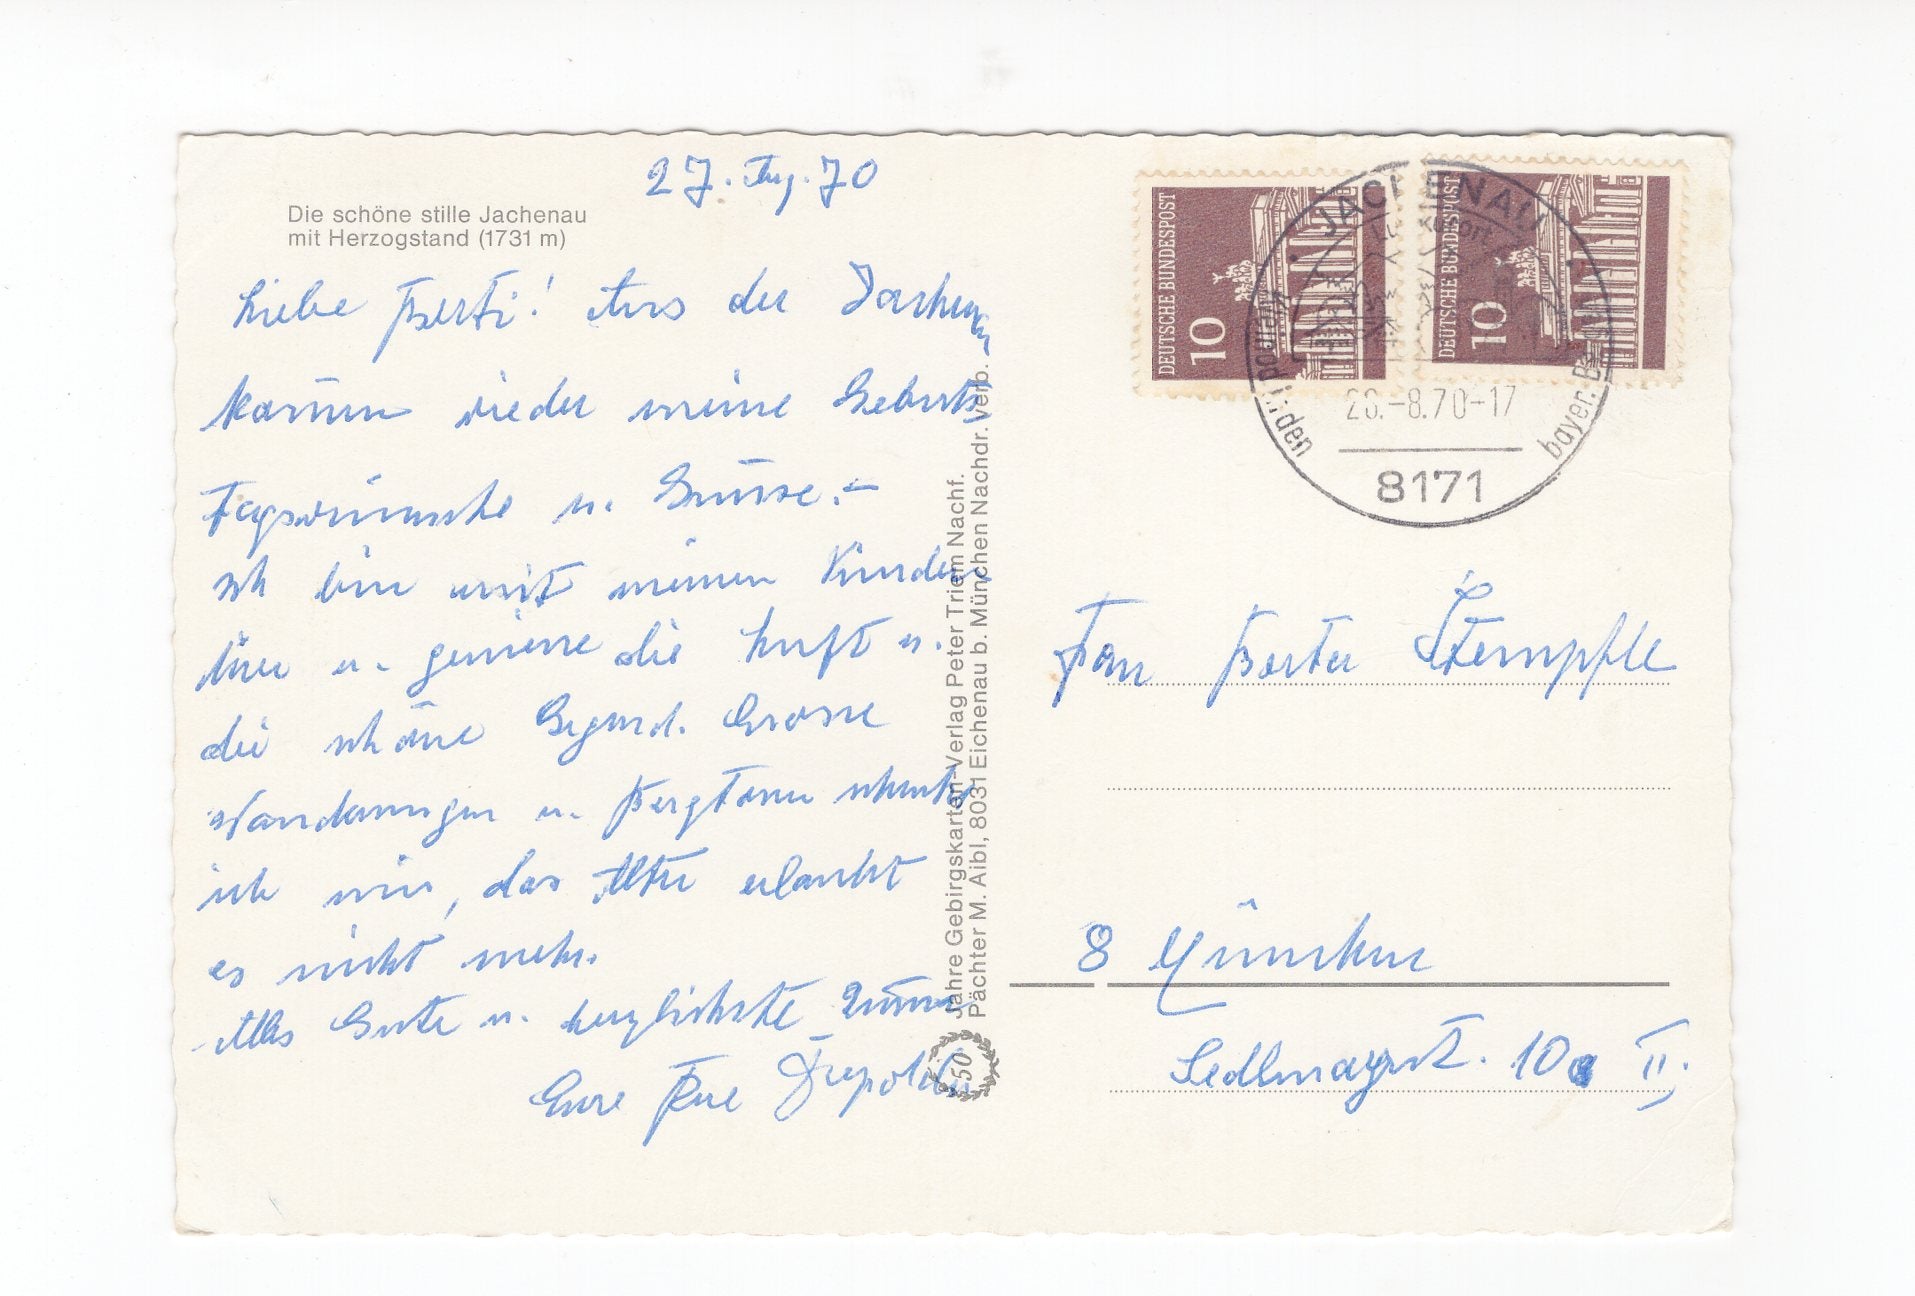 27. Aug. 70
Die schöne stille Jachenau
mit Herzogstand (1731 m)
Liebe Berti! Aus der Jachenau
kommen wieder meine Geburts
Tagswünsche u. Grüsse.-
Ich bin mit meinen Kindern
hier u. geniesse die Luft u.
die schöne Gegend. Grosse
Wanderungen u. Bergtouren schenke
ich mir, das Alter erlaubt
es nicht mehr.
Alles Gute u. herzlichste Grüsse
Eure
Jahre Gebirgskarten-Verlag Peter Triem Nachf.
Pächter M. Aibl, 8031 Eichenau b. München Nachdr. verb.
50
DEUTSCHE BUNDESPOST
10
DEUTSCHE BUNDESPOST
10
JACHENAU
Luftkurort
bayer.
.-8.70-17
8171
Frau Berta Stempfle
8 München
Sedlmayrstr. 10a II.